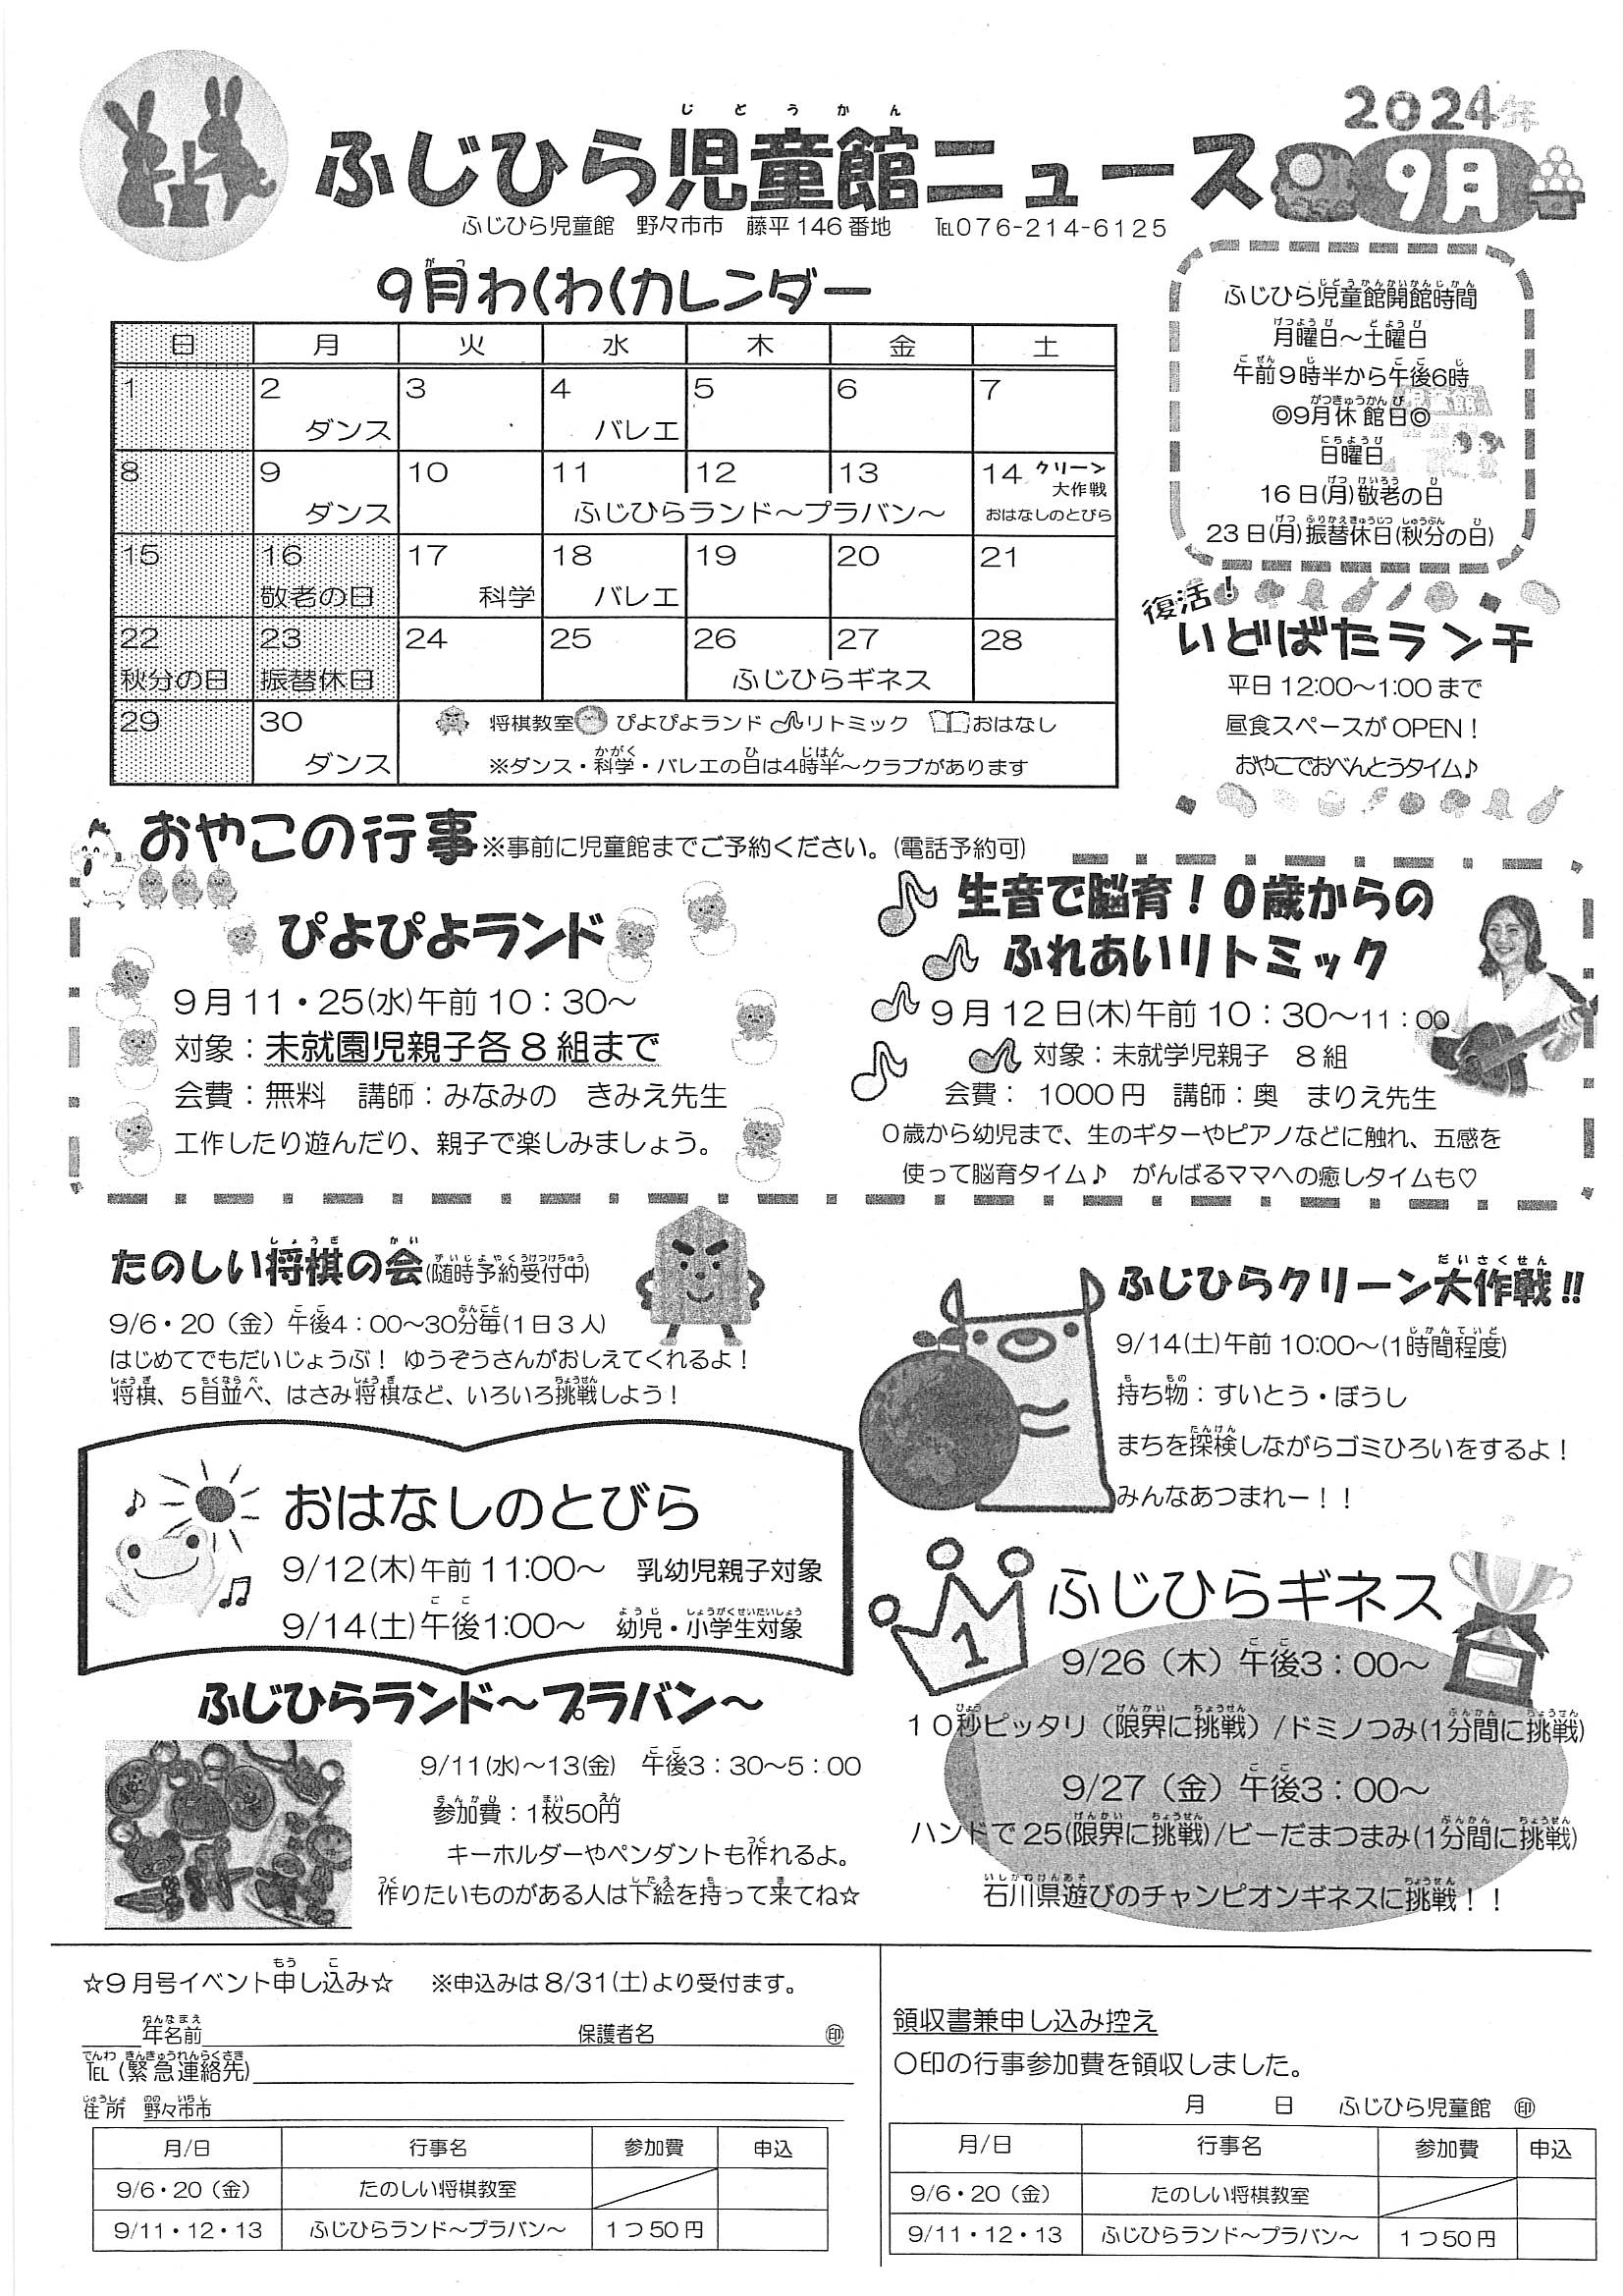 2024年
9月
ふじひら児童館ニュース
じどうかん
ふじひら児童館 野々市市 藤平146番地 ℡076-214-6125
9月わくわくカレンダー
日 月 火 水 木 金 土
1 2 3 4 5 6 7
ダンス バレエ
8 9 10 11 12 13 14 クリーン大作戦
ダンス ふじひらランド～プラバン～ おはなしのとびら
15 16 17 18 19 20 21
敬老の日 科学 バレエ
22 23 24 25 26 27 28
秋分の日 振替休日 ふじひらギネス
29 30 将棋教室 ぴよぴよランド リトミック おはなし
ダンス ※ダンス・科学・バレエの日は4時半～クラブがあります
ふじひら児童館開館時間
月曜日～土曜日
午前9時半から午後6時
◎9月休館日◎
日曜日
16日(月)敬老の日
23日(月)振替休日(秋分の日)
復活！
いどばたランチ
平日12:00～1:00まで
昼食スペースがOPEN！
おやこでおべんとうタイム♪
おやこの行事 ※事前に児童館までご予約ください。(電話予約可)
ぴよぴよランド
9月11・25(水)午前10：30～
対象：未就園児親子各8組まで
会費：無料 講師：みなみの きみえ先生
工作したり遊んだり、親子で楽しみましょう。
生音で脳育！0歳からの
ふれあいリトミック
9月12日(木)午前10：30～11：00
対象：未就学児親子 8組
会費： 1000円 講師：奥 まりえ先生
0歳から幼児まで、生のギターやピアノなどに触れ、五感を
使って脳育タイム♪ がんばるママへの癒しタイムも♡
たのしい将棋の会(随時予約受付中)
9/6・20（金）午後4：00～30分毎(1日3人)
はじめてでもだいじょうぶ！ ゆうぞうさんがおしえてくれるよ！
将棋、5目並べ、はさみ将棋など、いろいろ挑戦しよう！
ふじひらクリーン大作戦!!
9/14(土)午前10:00～(1時間程度)
持ち物：すいとう・ぼうし
まちを探検しながらゴミひろいをするよ！
みんなあつまれー！！
おはなしのとびら
9/12(木)午前11:00～ 乳幼児親子対象
9/14(土)午後1:00～ 幼児・小学生対象
ふじひらランド～プラバン～
9/11(水)～13(金) 午後3：30～5：00
参加費：1枚50円
キーホルダーやペンダントも作れるよ。
作りたいものがある人は下絵を持って来てね☆
1
ふじひらギネス
9/26（木）午後3：00～
10秒ピッタリ（限界に挑戦）/ドミノつみ(1分間に挑戦)
9/27（金）午後3：00～
ハンドで25(限界に挑戦)/ビーだまつまみ(1分間に挑戦)
石川県遊びのチャンピオンギネスに挑戦！！
☆9月号イベント申し込み☆ ※申込みは8/31(土)より受付ます。
年名前 保護者名 ㊞
TEL(緊急連絡先)
住所 野々市市
月/日 行事名 参加費 申込
9/6・20（金） たのしい将棋教室
9/11・12・13 ふじひらランド～プラバン～ 1つ50円
領収書兼申し込み控え
〇印の行事参加費を領収しました。
月 日 ふじひら児童館 ㊞
月/日 行事名 参加費 申込
9/6・20（金） たのしい将棋教室
9/11・12・13 ふじひらランド～プラバン～ 1つ50円